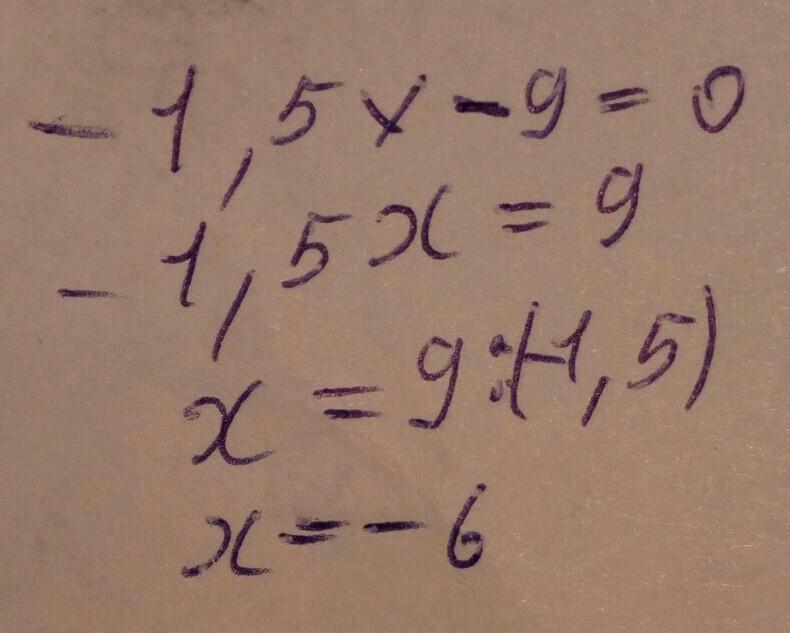 - 1,5x - 9 = 0
- 1,5x = 9
x = 9:(-1,5)
x = - 6